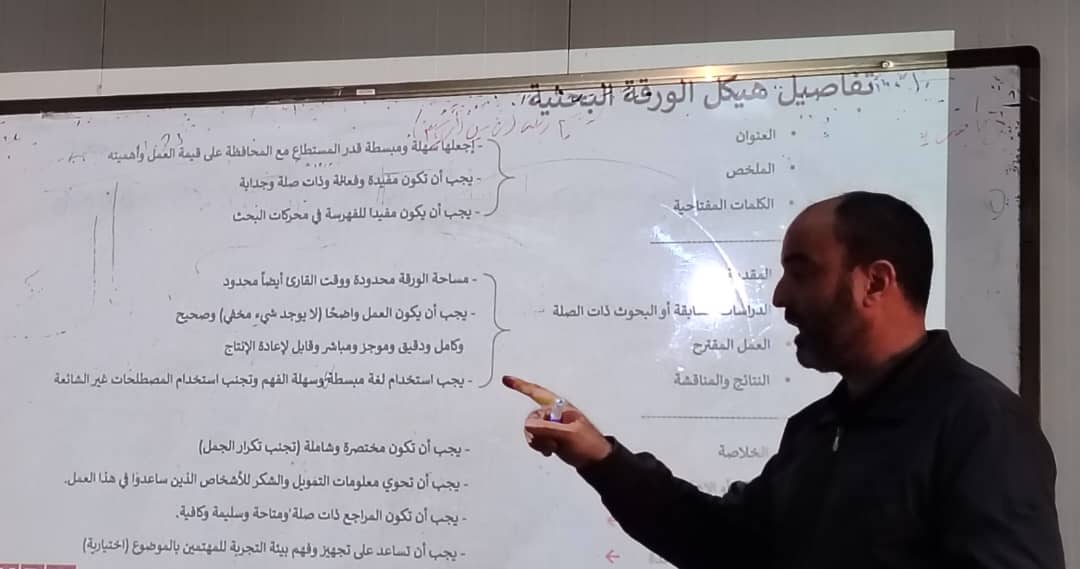 تفاصيل هيكل الورقة البحثية
العنوان
- إجعلها سهلة ومبسطة قدر المستطاع مع المحافظة على قيمة العمل وأهميته
الملخص
- يجب أن تكون مفيدة وفعالة وذات صلة وجذابة
الكلمات المفتاحية
- يجب أن يكون مفيدا للفهرسة في محركات البحث
- مساحة الورقة محدودة ووقت القارئ أيضاً محدود
أو البحوث ذات الصلة
- يجب أن يكون العمل واضحًا (لا يوجد شيء مخفي) وصحيح
العمل المقترح
وكامل ودقيق وموجز ومباشر وقابل لإعادة الإنتاج
النتائج والمناقشة
- يجب استخدام لغة مبسطة وسهلة الفهم وتجنب استخدام المصطلحات غير الشائعة
الخلاصة
- يجب أن تكون مختصرة وشاملة (تجنب تكرار الجمل)
- يجب أن تحوي معلومات التمويل والشكر للأشخاص الذين ساعدوا في هذا العمل.
- يجب أن تكون المراجع ذات صلة ومتاحة وسليمة وكافية.
- يجب أن تساعد على تجهيز وفهم بيئة التجربة للمهتمين بالموضوع (اختيارية)